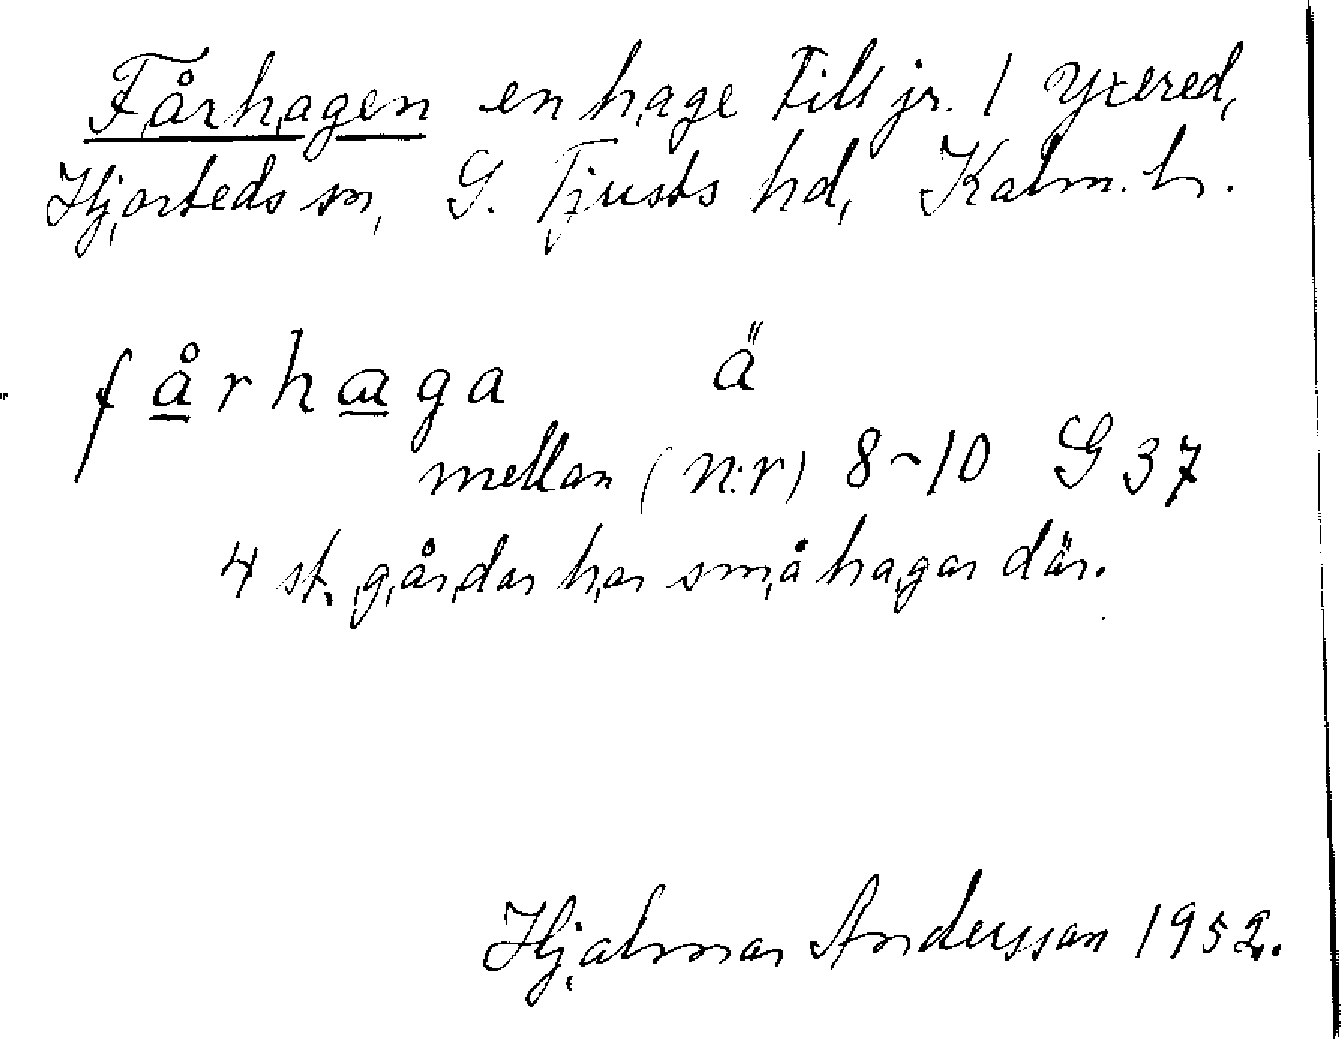 Fårhagen en hage till jr. 1 Yxered,
Hjorteds sn, S. Tjusts hd, Kalm. ln.
fårhaga ä
mellan (n:r) 8-10 G 37
4 st. gårdar har små hagar där.
Hjalmar Andersson 1952.